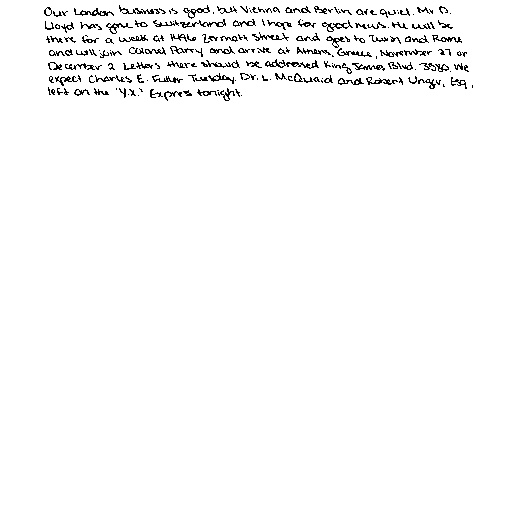 Our London business is good, but Vienna and Berlin are quiet. Mr. D.
Lloyd has gone to Switzerland and I hope for good news. He will be
there for a week at 1496 Zermott Street and goes to Turin and Rome
and will join Colonel Parry and arrive at Athens, Greece, November 27 or
December 2. Letters there should be addressed King James Blvd. 3580. We
expect Charles E. Fuller Tuesday. Dr. L. McQuaid and Robert Unger, Esq.,
left on the "Y.X." Express tonight.